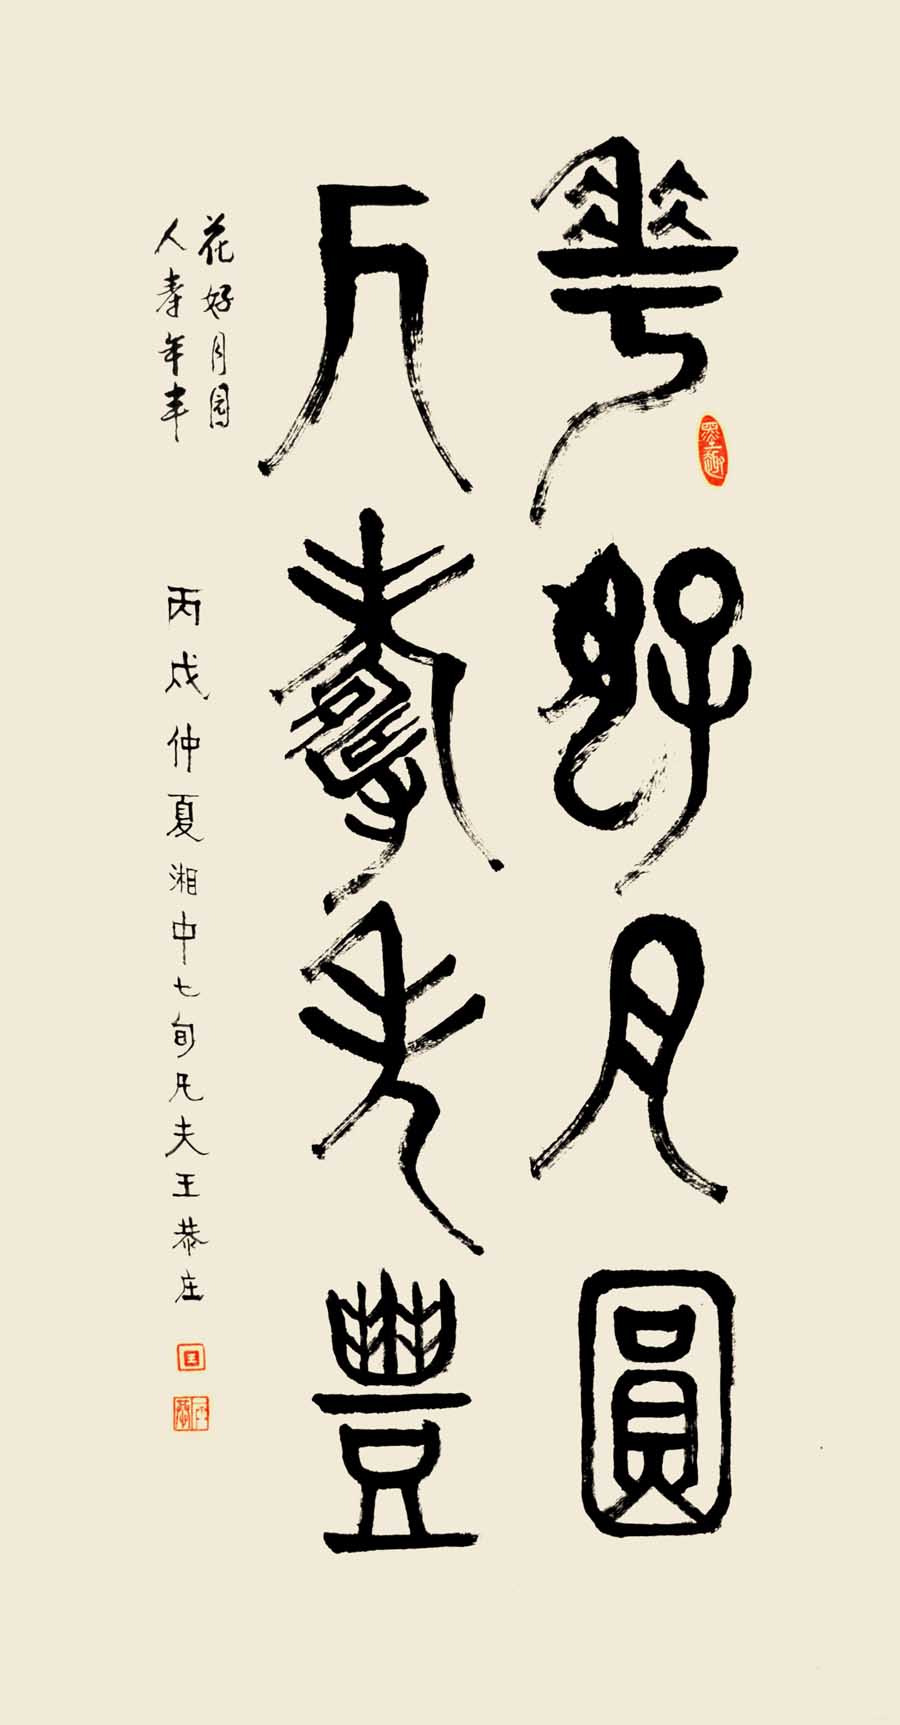 華好月圓
人壽年豐
花好月圆
人寿年丰
丙戌仲夏湘中七旬凡夫王恭庄
墨趣